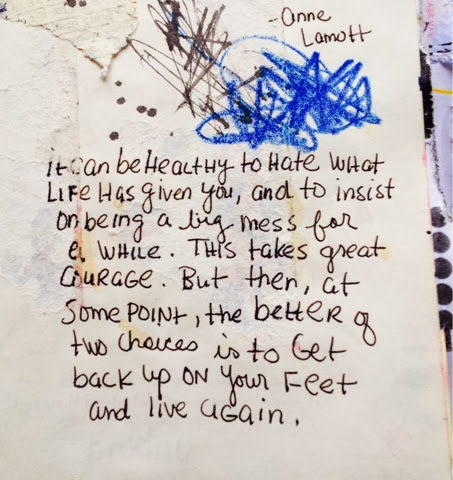 -Anne
Lamott
it can be HeALtHy to Hate WHAt
LiFe Has given you, and to insist
on being a big mess for
a WHiLe. THis takes great
CouRAGe. But then, at
Some POiNt, the better of
two Choices is to Get
back up ON Your Feet
and live aGain.